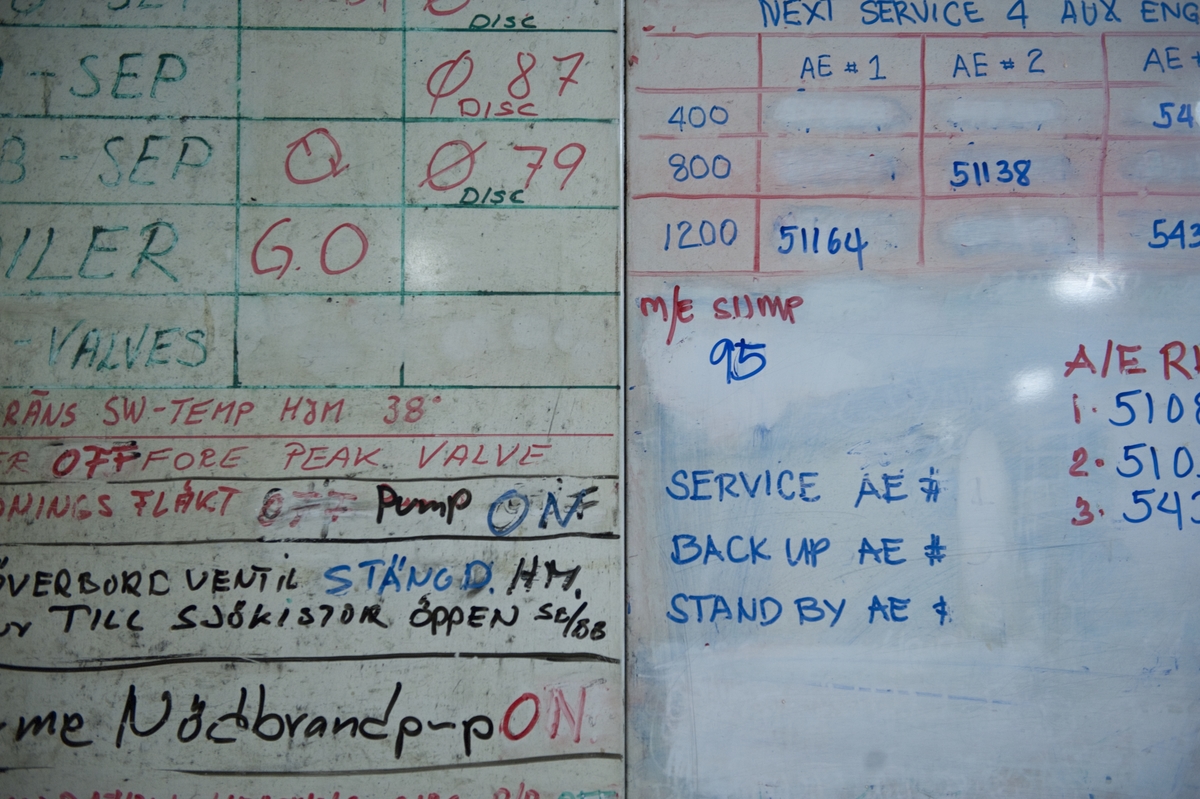 DISC
- SEP Ø 87
DISC
B - SEP Ø Ø 79
DISC
ILER G.O
- VALVES
RÄNS SW-TEMP HJM 38°
ER OFF FORE PEAK VALVE
NINGS FLÄKT OFF Pump ON
ÖVERBORD VENTIL STÄNGD. HM.
TILL SJÖKISTOR ÖPPEN SB/BB
me Nödbrandp-p ON
NEXT SERVICE 4 AUX ENG
AE # 1 AE # 2 AE
400 54
800 51138
1200 51164 543
M/E SUMP
95
A/E R
1. 5108
2. 510
3. 543
SERVICE AE #
BACK UP AE #
STAND BY AE #